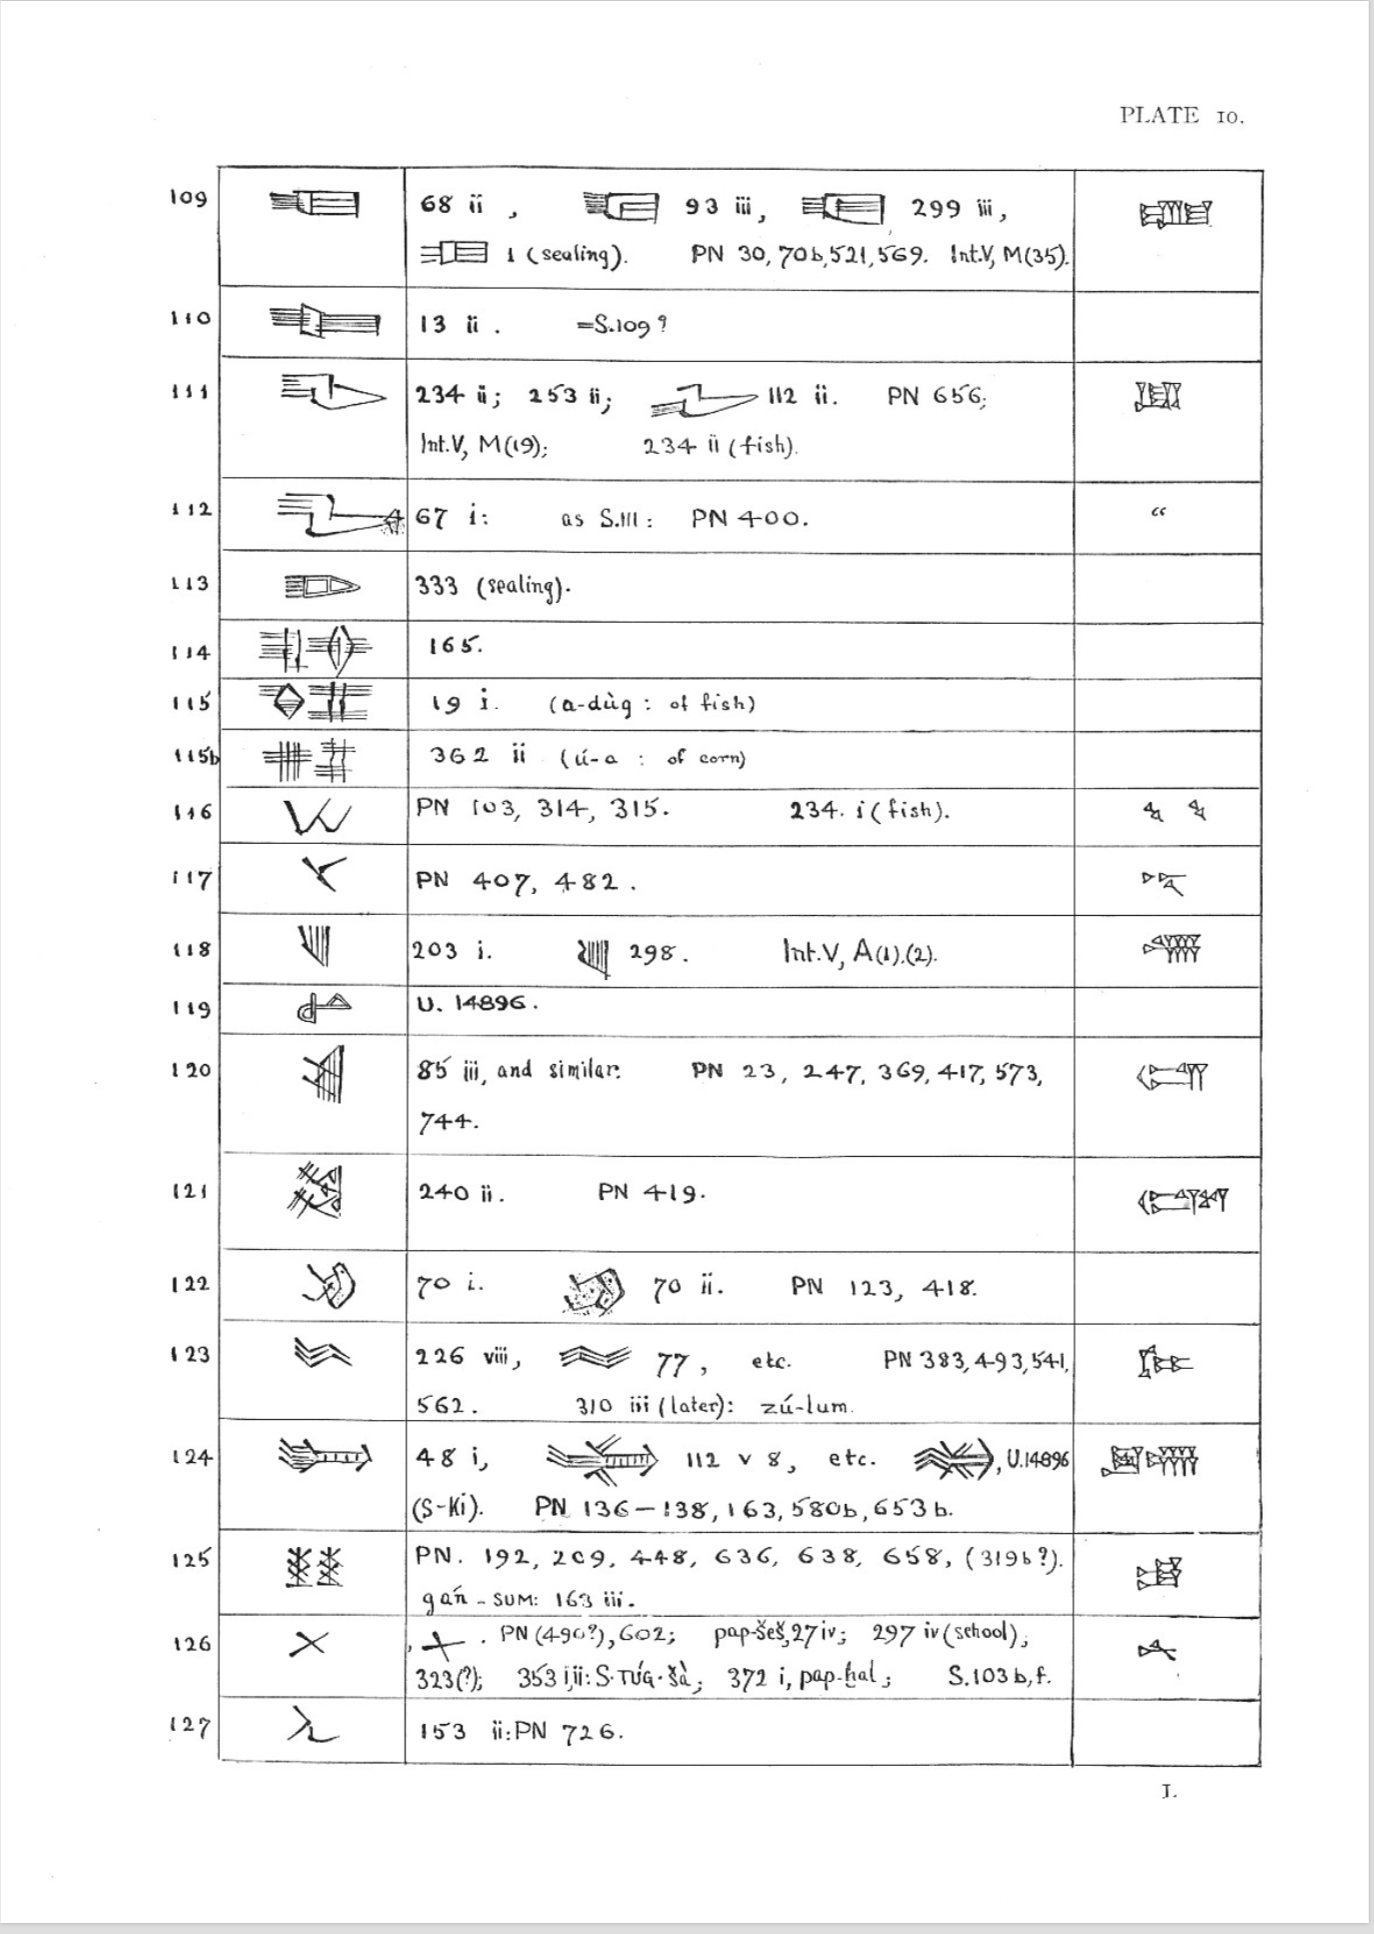 PLATE 10.
109 68 ii , 93 iii, 299 iii,
1 (sealing). PN 30, 70b, 521, 569. Int.V, M(35).
110 13 ii . =S.109?
111 234 ii; 253 ii; 112 ii. PN 656;
Int.V, M(19); 234 ii (fish).
112 67 i: as S.111: PN 400. “
113 333 (sealing).
114 165.
115 19 i. (a-dùg : of fish)
115b 362 ii (ú-a : of corn)
116 PN 103, 314, 315. 234. i (fish).
117 PN 407, 482.
118 203 i. 298. Int.V, A(1).(2).
119 U. 14896.
120 85 iii, and similar. PN 23, 247, 369, 417, 573,
744.
121 240 ii. PN 419.
122 70 i. 70 ii. PN 123, 418.
123 226 viii, 77, etc. PN 383, 493, 541,
562. 310 iii (later): zú-lum.
124 48 i, 112 v 8, etc. , U.14896
(S-Ki). PN 136–138, 163, 580b, 653b.
125 PN. 192, 209, 448, 636, 638, 658, (319b?).
gán - SUM: 163 iii.
126 , . PN (490?), 602; pap-šeš, 27 iv; 297 iv (school);
323(?); 353 i,ii: S·TÚG·šà; 372 i, pap-ḫal; S.103 b, f.
127 153 ii: PN 726.
I.